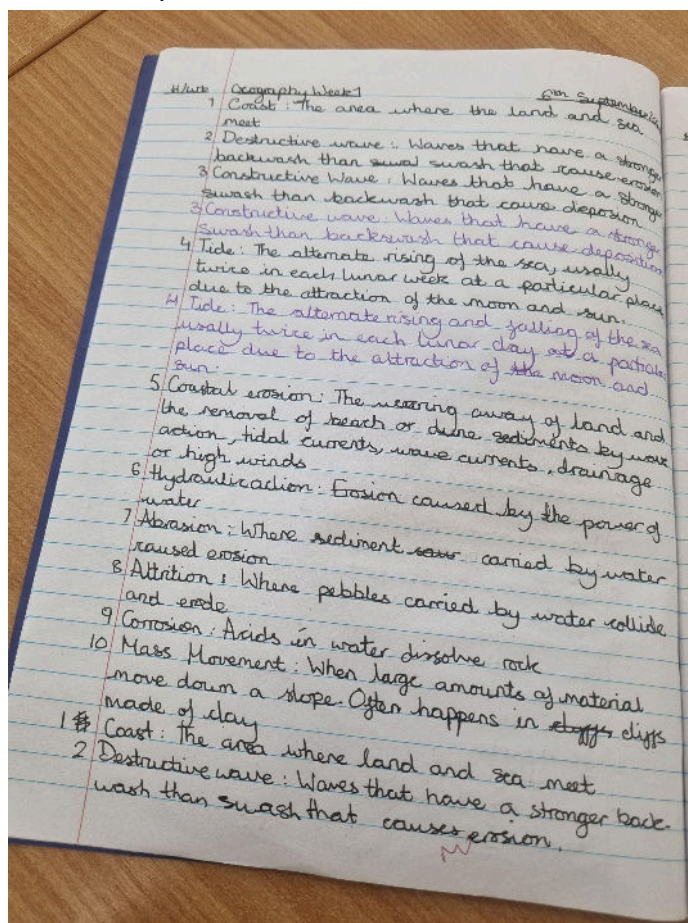 H/wk Geography Week 1 6th September
1 Coast : The area where the land and sea
meet
2 Destructive wave : Waves that have a stronger
backwash than swash that cause erosion
3 Constructive Wave : Waves that have a stronger
swash than backwash that cause deposion
3 Constructive wave : Waves that have a stronger
swash than backswash that cause deposition
4 Tide : The alternate rising of the sea, usally
twice in each lunar week at a particular place
due to the attraction of the moon and sun.
4 Tide : The alternate rising and falling of the sea
usally twice in each lunar day at a particular
place due to the attraction of the moon and
sun.
5 Coastal erosion : The wearing away of land and
the removal of beach or dune sediments by wave
action, tidal currents, wave currents, drainage
or high winds
6 Hydraulic action : Erosion caused by the power of
water
7 Abrasion : Where sediment carried by water
caused erosion
8 Attrition : Where pebbles carried by water collide
and erode
9 Corrosion : Acids in water dissolve rock
10 Mass Movement : When large amounts of material
move down a slope. Often happens in cliffs
made of clay
1 Coast : The area where land and sea meet
2 Destructive wave : Waves that have a stronger back-
wash than swash that causes erosion.